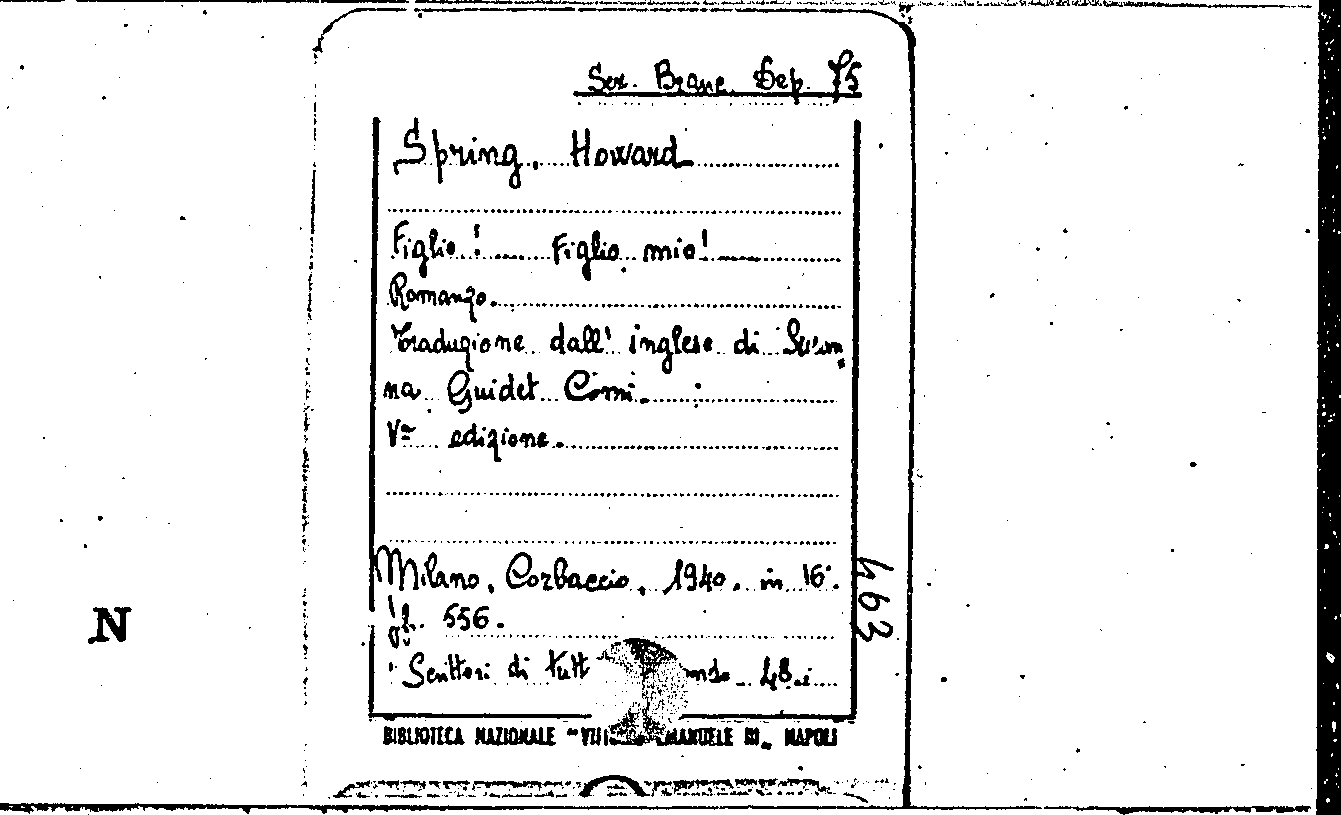 Sez. Branc. Dep. 75
Spring, Howard
Figlio! Figlio mio!
Romanzo.
Traduzione dall' inglese di Susan=
na Guidet Comi.
Vª edizione.
Milano, Corbaccio, 1940. in 16°.
556.
Scrittori di tutt ondo 48.
BIBLIOTECA NAZIONALE "VITT EMANUELE III„ NAPOLI
463
N